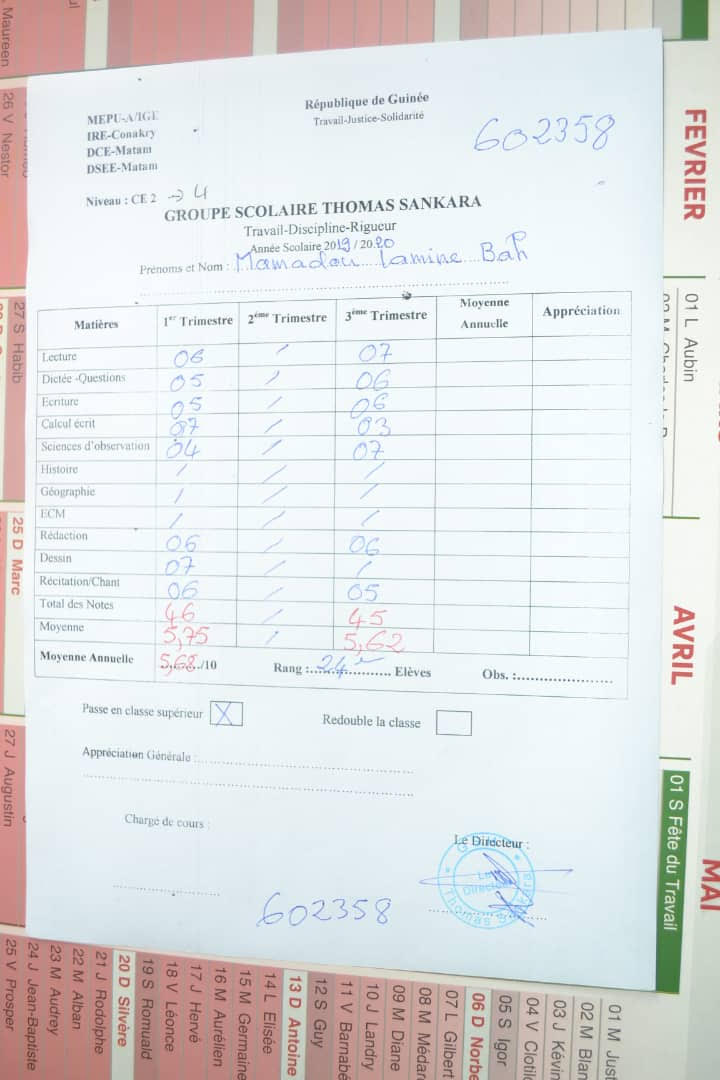 MEPU-A/IGE
IRE-Conakry
DCE-Matam
DSEE-Matam
République de Guinée
Travail-Justice-Solidarité
602358
Niveau : CE 2 → 4
GROUPE SCOLAIRE THOMAS SANKARA
Travail-Discipline-Rigueur
Année Scolaire 2019 / 2020
Prénoms et Nom : Mamadou Lamine Bah
Matières 1er Trimestre 2ème Trimestre 3ème Trimestre Moyenne Annuelle Appréciation
Lecture 06 / 07
Dictée -Questions 05 / 06
Ecriture 05 / 06
Calcul écrit 07 / 03
Sciences d'observation 04 / 07
Histoire / / /
Géographie / / /
ECM / / /
Rédaction 06 / 06
Dessin 07 / /
Récitation/Chant 06 / 05
Total des Notes 46 / 45
Moyenne 5,75 / 5,62
Moyenne Annuelle 5,68/10 Rang :...24e... Elèves Obs. :
Passe en classe supérieur X Redouble la classe
Appréciation Générale :
Chargé de cours :
Le Directeur :
Le
Directeur
Thomas
602358
FEVRIER
AVRIL
MAI
01 L Aubin
01 S Fête du Travail
Maureen
26 V Nestor
27 S Habib
25 D Marc
27 J Augustin
25 V Prosper
24 J Jean-Baptiste
23 M Audrey
22 M Alban
21 J Rodolphe
20 D Silvère
19 S Romuald
18 V Léonce
17 J Hervé
16 M Aurélien
15 M Germaine
14 L Elisée
13 D Antoine
12 S Guy
11 V Barnabé
10 J Landry
09 M Diane
08 M Médard
07 L Gilbert
06 D Norbe
05 S Igor
04 V Clotil
03 J Kévin
02 M Blan
01 M Just